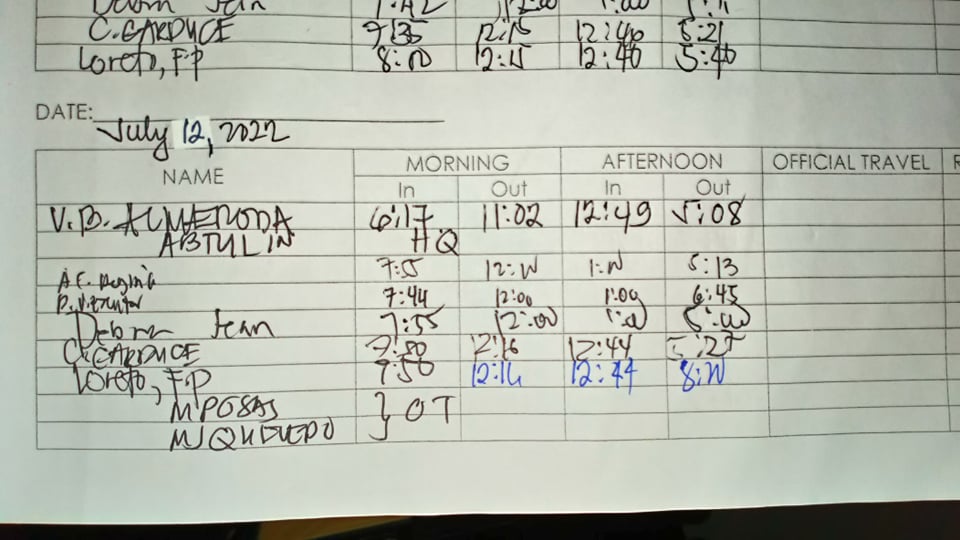 7:42 12:00 1:00 5:11
C. GARDUCE 7:35 12:15 12:40 5:21
Loreto, F.P 8:00 12:15 12:40 5:40
DATE: July 12, 2022
NAME MORNING AFTERNOON OFFICIAL TRAVEL
In Out In Out
V.B. ALMENODA 6:17 11:02 12:49 5:08
ABTULIN HQ
7:55 12:00 1:00 5:13
7:44 12:00 1:00 6:45
Debra Jean 7:55 12:00 1:00 5:00
C. GARDUCE 7:50 12:16 12:44 5:27
Loreto, F.P 7:58 12:16 12:44 8:00
MPOSAS } OT
MJ QUEVEDO